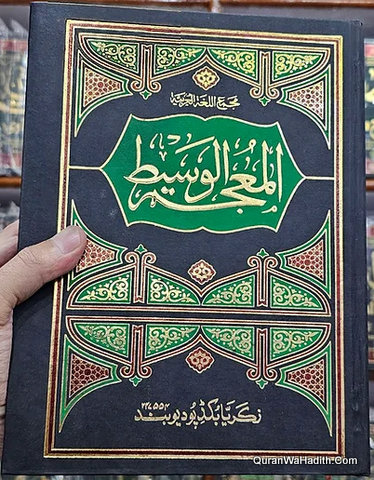 مجمع اللغة العربية
المعجم الوسيط
زکریا بکڈپو دیوبند ۲۴۷۵۵۴
QuranWaHadith.Com